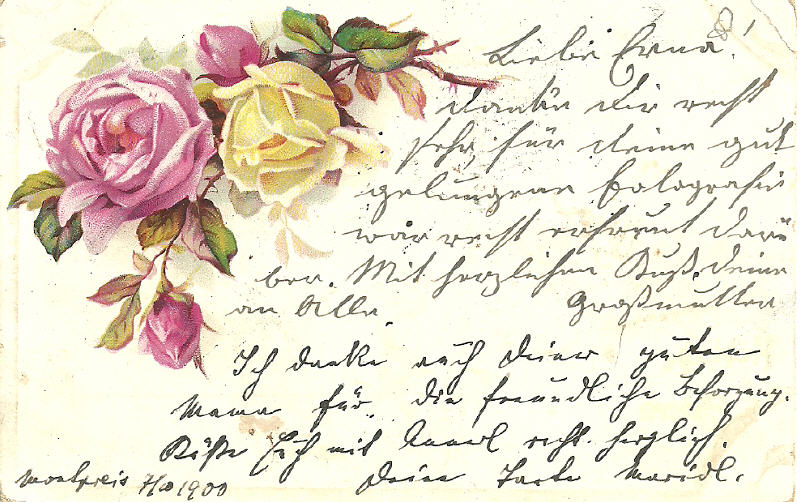 Liebe Erna!
danke dir recht
sehr, für deine gut
gelungene Fotografie
war recht erfreut darü
ber. Mit herzlichen Kuß, deine
an Alle. Großmutter
Ich danke auch Deiner guten
Mama für die freundliche Besorgung.
Küße Euch mit recht herzlich.
Deine Tante Maridl.
Montpreis 1900